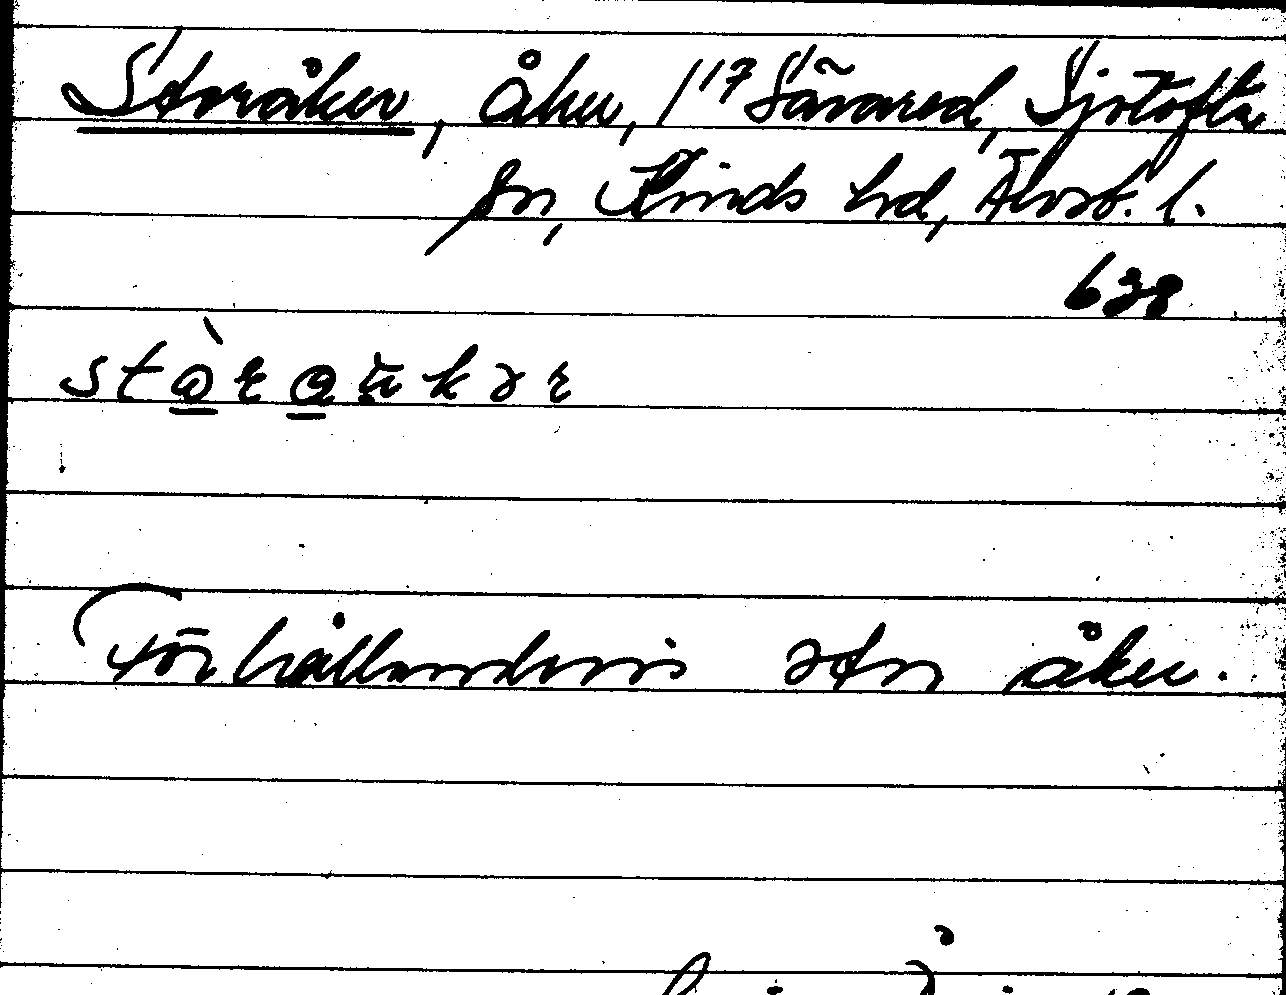 Storåker, åker, 1/17 Sävared, Sjötofta
sn, Kinds hd, Älvsb. l.
638
Förhållandevis stor åker.